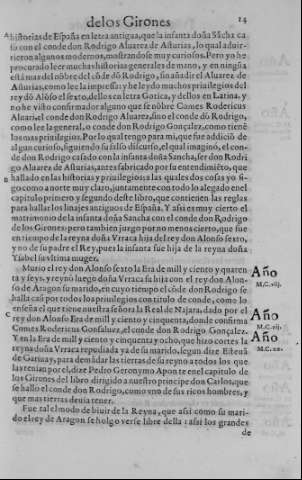 de los Girones 14
A historias de España en letra antigua, que la infanta doña Sãcha ca
só con el conde don Rodrigo Aluarez de Asturias, lo qual aduir-
tieron algunos modernos, mostrandose muy curiosos. Pero yo he
procurado leer muchas historias generales de mano, y en ningũa
está mas del nõbre del cõde dõ Rodrigo, sin añadir el Aluarez de
Asturias, como lee la impressa y he leydo muchos priuilegios del
rey dõ Alõso el sexto, dellos en letra Gotica, y dellos en Latina, y
no he visto confirmador alguno que se nõbre Comes Rodericus
Aluari, el conde don Rodrigo Aluarez, sino el conde dõ Rodrigo,
como lee la general, o conde don Rodrigo Gonçalez, como tienē
los mas priuilegios. Por lo qual tengo para mi, que fue addiciõ de
algun curioso, siguiendo su falso discurso, el qual imaginó, el con-
de don Rodrigo casado con la infanta doña Sancha, ser don Rodri
go Aluarez de Asturias, antes fabricado por su entendimiēto, que
B hallado en las historias y priuilegios: a las quales dos cosas yo si-
go como a norte muy claro, juntamente con todo lo alegado enel
capitulo primero y segundo deste libro, que contienen las reglas
para hallar los linajes antiguos de España. Y assi es muy cierto el
matrimonio de la infanta doña Sancha con el conde don Rodrigo
de los Girones: pero tambien juzgo por no menos cierto, que fue
en tiempo de la reyna doña Vrraca hija del rey don Alonso sexto,
y no de su padre el Rey, pues la infanta fue hija de la reyna doña
Ysabel su vltima muger.
Murio el rey don Alonso sexto la Era de mill y ciento y quaren
ta y seys, y reynò luego doña Vrraca su hija con el rey don Alon-
so de Aragon su marido, en cuyo tiempo el cõde don Rodrigo se
halla casi por todos los priuilegios con titulo de conde, como lo
enseña el que tiene nuestra señora la Real de Najara, dado por el
C rey don Alonso Era de mill y ciento y cinquenta, donde confirma
Comes Rodericus Gonsaluez, el conde don Rodrigo Gonçalez.
Y en la Era de mill y ciento y cinquenta y ocho, que hizo cortes la
reyna doña Vrraca repudiada ya de su marido, segun dize Esteuã
de Garibay, para demãdar las tierras de su reyno a todos los que
las tenian por el, dize Pedro Geronymo Aponte en el capitulo de
los Girones del libro dirigido a nuestro principe don Carlos, que
se hallo el conde don Rodrigo, como vno de sus ricos hombres, y
que mas tierras deuia tener.
Fue tal el modo de biuir de la Reyna, que assi como su mari-
do el rey de Aragon se holgo verse libre della: assi los grandes
de
Año
M.C.viij.
Año
M.C.xij.
Año
M.C.xx.